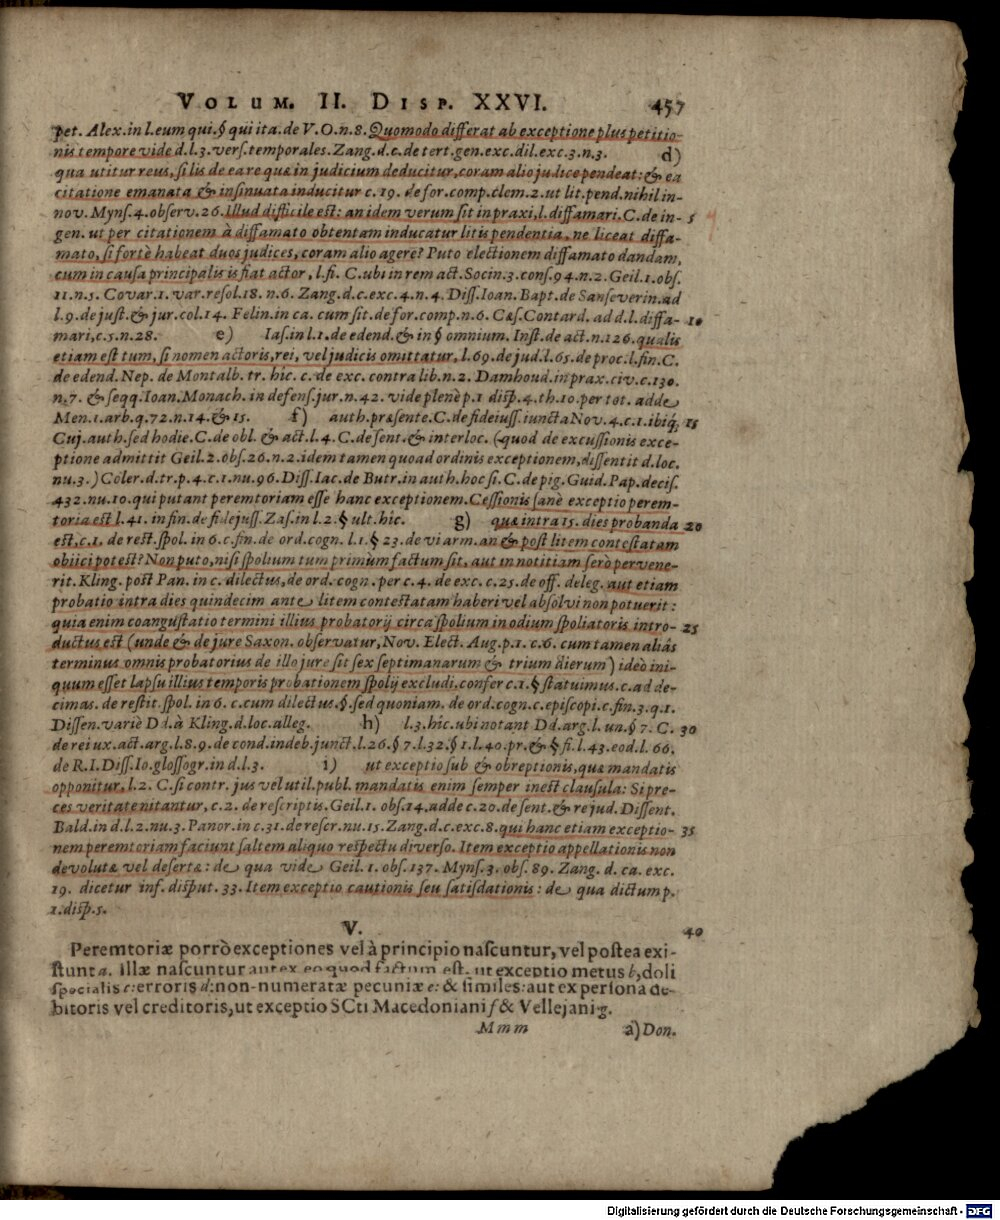 VOLUM. II. DISP. XXVI. 457
pet. Alex. in l. eum qui. § qui ita. de V. O. n. 8. Quomodo differat ab exceptione plus petitio-
nis tempore vide d. l. 3. verſ. temporales. Zang. d. c. de tert. gen. exc. dil. exc. 3. n. 3. d)
qua utitur reus, ſi lis de ea re quæ in judicium deducitur, coram alio judice pendeat: & ea
citatione emanata & inſinuata inducitur c. 19. de for. comp. clem. 2. ut lit. pend. nihil in-
nov. Mynſ. 4. obſerv. 26. Illud difficile eſt: an idem verum ſit in praxi, l. diffamari. C. de in- 5
gen. ut per citationem à diffamato obtentam inducatur litis pendentia, ne liceat diffa-
mato, ſi fortè habeat duos judices, coram alio agere? Puto electionem diffamato dandam,
cum in cauſa principalis is fiat actor, l. fi. C. ubi in rem act. Socin. 3. conſ. 94. n. 2. Geil. 1. obſ.
11. n. 5. Covar. 1. var. reſol. 18. n. 6. Zang. d. c. exc. 4. n. 4. Diſſ. Ioan. Bapt. de Sanſeverin. ad
l. 9. de juſt. & jur. col. 14. Felin. in ca. cum ſit. de for. comp. n. 6. Cæſ. Contard. ad d. l. diffa- 10
mari, c. 5. n. 28. e) Iaſ. in l. 1. de edend. & in § omnium. Inſt. de act. n. 126. qualis
etiam eſt tum, ſi nomen actoris, rei, vel judicis omittatur, l. 69. de jud. l. 65. de proc. l. fin. C.
de edend. Nep. de Montalb. tr. hic. c. de exc. contra lib. n. 2. Damhoud. in prax. civ. c. 130.
n. 7. & ſeqq. Ioan. Monach. in defenſ. jur. n. 42. vide plenè p. 1 diſp. 4. th. 10. per tot. adde
Men. 1. arb. q. 72. n. 14. & 15. f) auth. præſente. C. de fideiuſſ. iuncta Nov. 4. c. 1. ibiq́; 15
Cuj. auth. ſed hodie. C. de obl. & act. l. 4. C. de ſent. & interloc. (quod de excuſſionis exce-
ptione admittit Geil. 2. obſ. 26. n. 2. idem tamen quoad ordinis exceptionem, diſſentit d. loc.
nu. 3.) Coler. d. tr. p. 4. c. 1. nu. 96. Diſſ. Iac. de Butr. in auth. hoc ſi. C. de pig. Guid. Pap. deciſ.
432. nu. 10. qui putant peremtoriam eſſe hanc exceptionem. Ceſſionis ſanè exceptio perem-
toria eſt l. 41. in fin. de fidejuſſ. Zaſ. in l. 2. § ult. hic. g) quæ intra 15. dies probanda 20
eſt, c. 1. de reſt. ſpol. in 6. c. fin. de ord. cogn. l. 1. § 23. de vi arm. an & poſt litem conteſtatam
obiici poteſt? Non puto, niſi ſpolium tum primum factum ſit, aut in notitiam ſerò pervene-
rit. Kling. poſt Pan. in c. dilectus, de ord. cogn. per c. 4. de exc. c. 25. de off. deleg. aut etiam
probatio intra dies quindecim ante litem conteſtatam haberi vel abſolvi non potuerit:
quia enim coanguſtatio termini illius probatorij circa ſpolium in odium ſpoliatoris intro- 25
ductus eſt (unde & de jure Saxon. obſervatur, Nov. Elect. Aug. p. 1. c. 6. cum tamen aliâs
terminus omnis probatorius de illo jure ſit ſex ſeptimanarum & trium dierum) ideò ini-
quum eſſet lapſu illius temporis probationem ſpolij excludi. confer c. 1. § ſtatuimus. c. ad de-
cimas. de reſtit. ſpol. in 6. c. cum dilectus. §. ſed quoniam. de ord. cogn. c. epiſcopi. c. fin. 3. q. 1.
Diſſen. variè Dd. à Kling. d. loc. alleg. h) l. 3. hîc. ubi notant Dd. arg. l. un. § 7. C. 30
de rei ux. act. arg. l. 8. 9. de cond. indeb. junct. l. 26. § 7. l. 32. § 1. l. 40. pr. & § fi. l. 43. eod. l. 66.
de R. I. Diſſ. Io. gloſſogr. in d. l. 3. i) ut exceptio ſub & obreptionis, quæ mandatis
opponitur, l. 2. C. ſi contr. jus vel util. publ. mandatis enim ſemper ineſt clauſula: Si pre-
ces veritate nitantur, c. 2. de reſcriptis. Geil. 1. obſ. 14. adde c. 20. de ſent. & re jud. Diſſent.
Bald. in d. l. 2. nu. 3. Panor. in c. 31. de reſcr. nu. 15. Zang. d. c. exc. 8. qui hanc etiam exceptio- 35
nem peremtoriam faciunt ſaltem aliquo reſpectu diverſo. Item exceptio appellationis non
devolutæ vel deſertæ: de qua vide Geil. 1. obſ. 137. Mynſ. 3. obſ. 89. Zang. d. ca. exc.
19. dicetur inf. diſput. 33. Item exceptio cautionis ſeu ſatiſdationis: de qua dictum p.
1. diſp. 5.
V. 40
Peremtoriæ porrò exceptiones vel à principio naſcuntur, vel poſtea exi-
ſtunt a. Illæ naſcuntur aut ex eo quod factum eſt, ut exceptio metus b, doli
ſpecialis c: erroris d: non-numeratæ pecuniæ e: & ſimiles: aut ex perſona de-
bitoris vel creditoris, ut exceptio SCti Macedoniani f & Vellejani g.
Mmm a) Don.
Digitalisierung gefördert durch die Deutsche Forschungsgemeinschaft - DFG